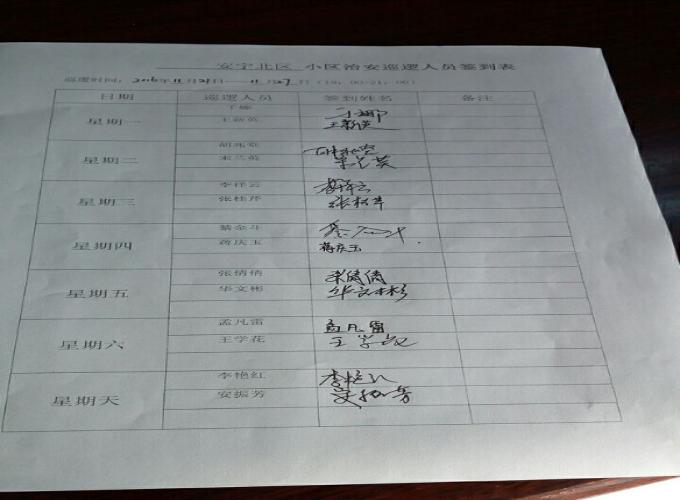 安宁北区 小区治安巡逻人员签到表
巡逻时间：2016年11月21日——11月27日（19：00-21：00）
日期 巡逻人员 签到姓名 备注
于娜 于娜
星期一 王新英 王新英
胡兆堂 胡兆堂
星期二 宋兰英 宋兰英
李祥云 李祥云
星期三 张桂芹 张桂芹
綦金斗 綦金斗
星期四 蒋庆玉 蒋庆玉
张倩倩 张倩倩
星期五 华文彬 华文彬
孟凡雷 孟凡雷
星期六 王学花 王学花
李艳红 李艳红
星期天 安振芳 安振芳